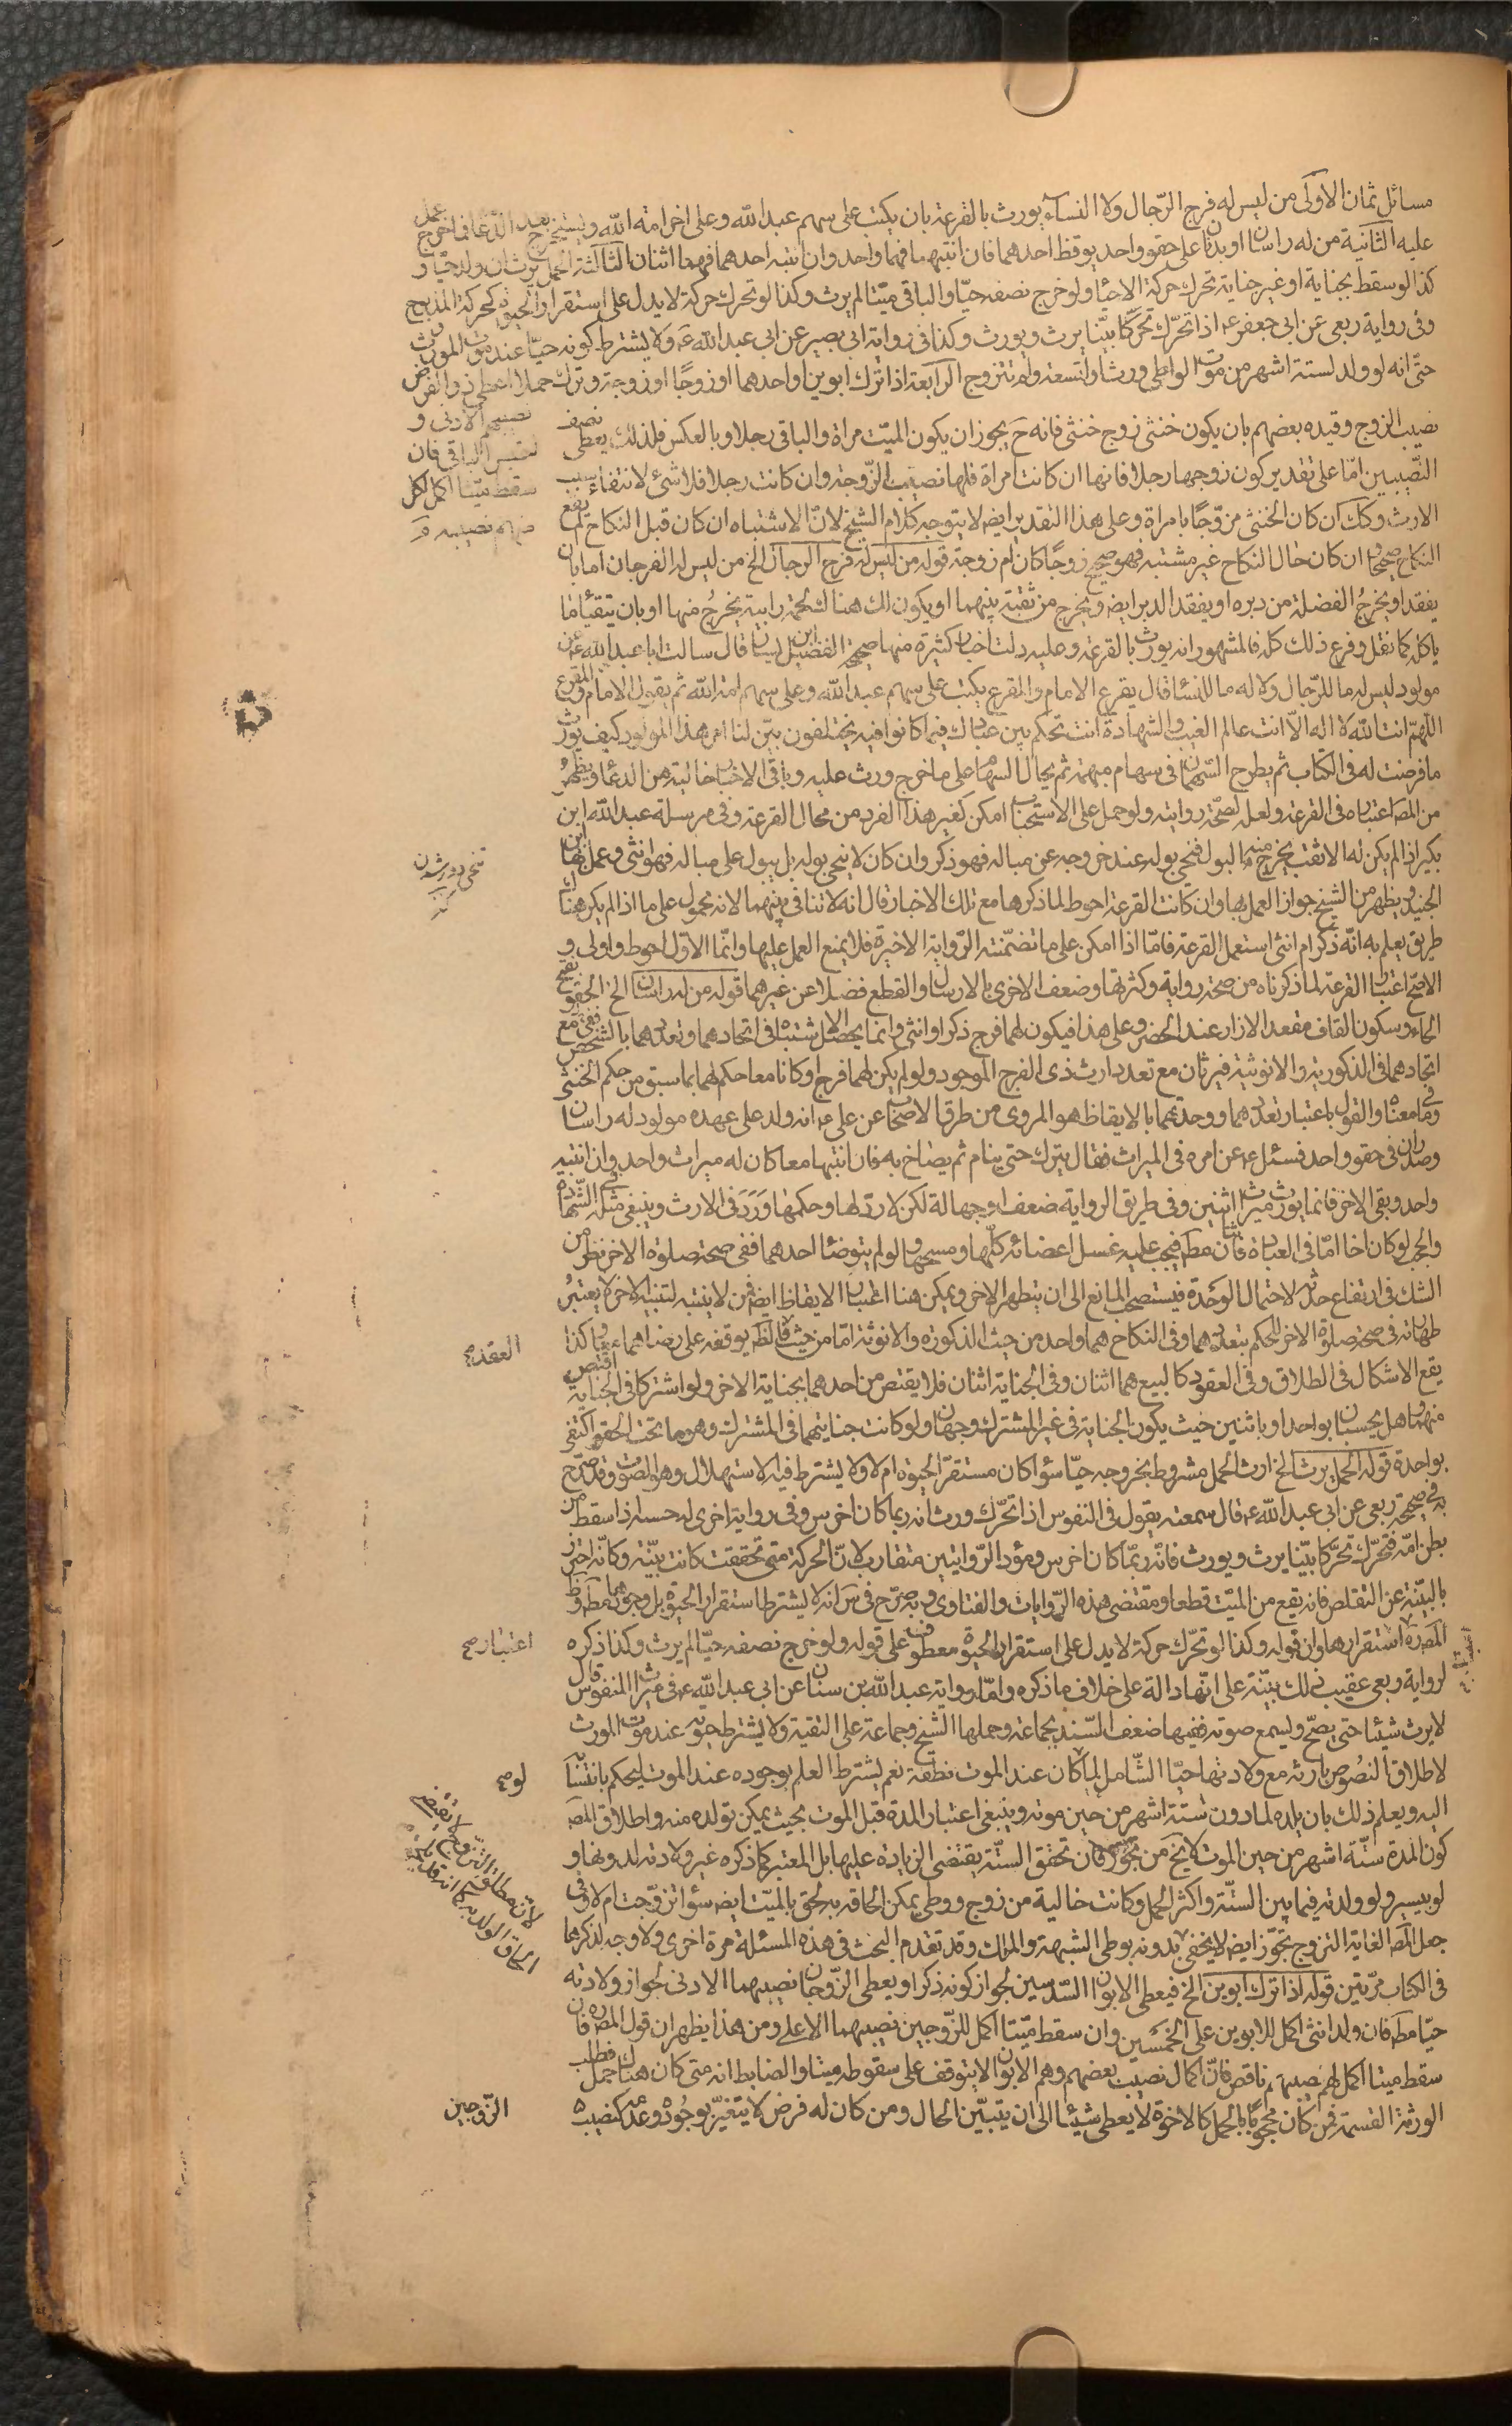 مسائل ثمان الاولى من ليس له فرج الرجال ولا النساء يورث بالقرعة بان يكتب على سهم عبد الله وعلى اخر امة الله ويستخرج بعد الدعاء فما خرج عمل
عليه الثانية من له راسان او بدنان على حقو واحد يوقظ احدهما فان انتبها فهما واحد وان انتبه احدهما فهما اثنان الثالثة الحمل يرث ان ولد حيا و
كذا لو سقط بجناية او غير جناية تحرك حركة الاحياء ولو خرج نصفه حيا والباقى ميتا لم يرث وكذا لو تحرك حركة لا يدل على استقرار الحيوة كحركة المذبوح
وفى رواية ربعى عن ابى جعفر ع اذا تحرك تحركا بينا يرث ويورث وكذا فى رواية ابى بصير عن ابى عبد الله ع ولا يشترط كونه حيا عند موت المورث
حتى انه لو ولد لستة اشهر من موت الواطى ورث او لتسعة ولم تتزوج الرابعة اذا ترك ابوين او احدهما او زوجا او زوجة وترك حملا اعطى ذوا الفرض
نصيبهم الادنى و
الباقى فان
سقط ميتا اكمل لكل
منهم نصيبه
نصيب الزوج وقيده بعضهم بان يكون خنثى زوج خنثى فانه ح يجوز ان يكون الميت مراة والباقى رجلا وبالعكس فلذلك يعطى نصف
النصيبين اما على تقدير كون زوجها رجلا فانها ان كانت امراة فلها نصيب الزوجة وان كانت رجلا فلا شئ لانتفاء سبب
الارث وكك ان كان الخنثى مزوجا بامراة وعلى هذا التقدير ايضه لا يتوجه كلام الشيخ لان الاشتباه ان كان قبل النكاح لم يقع
النكاح صحيحا وان كان حال النكاح غير مشتبه فهو صحيح زوجا كان ام زوجة قوله من ليس له فرج الرجال الخ من ليس له الفرجان اما بان
يفقد او يخرج الفضلة من دبره او يفقد الدبر ايضه ويخرج من ثقبة بينهما او يكون هناك لحمة رابية يخرج منها او بان يتقيأ ما
ياكله كما نقل وقوع ذلك كله فالمشهور انه يورث بالقرعة وعليه دلت اخبار كثيرة منها صحيحة الفضيل ابن يسار قال سالت ابا عبد الله ع عن
مولود ليس له ما للرجال ولا له ما للنساء قال يقرع الامام والمقرع يكتب على سهم عبد الله وعلى سهم امة الله ثم يقول الامام او المقرع
اللهم انت الله لا اله الا انت عالم الغيب والشهادة انت تحكم بين عبادك فيما كانوا فيه يختلفون بين لنا امر هذا المولود كيف يورث
ما فرضت له فى الكتاب ثم يطرح السهمان فى سهام مبهمة ثم يجال السهام على ما خرج ورث عليه وباقى الاخبار خالية من الدعاء ويظهر
من المصه اعتباره فى القرعة ولعله لصحة روايته ولو حمل على الاستحباب امكن كغير هذا الفرد من محال القرعة وفى مرسلة عبد الله ابن
بكير اذا لم يكن له الا ثقب يخرج منه البول فنحى بوله عند خروجه عن مباله فهو ذكر وان كان لا ينحى بوله بل يبول على مباله فهو انثى وعمل بها ابن
الجنيد ويظهر من الشيخ جواز العمل بها وان كانت القرعة احوط لما ذكرها مع تلك الاخبار قال انه لا تنافى بينهما لانه محمول على ما اذا لم يكن هناك
طريق يعلم به انه ذكر ام انثى استعمل القرعة فاما اذا امكن على ما تضمنته الرواية الاخيرة فلا يمنع العمل عليها وانما الاول احوط واولى و
الاصح اعتبار القرعة لما ذكرناه من صحة رواية وكثرتها وضعف الاخرى بالارسال والقطع فضلا عن غيرهما قوله من له راسان الخ الحقو بفتح
الحاء وسكون القاف مقعد الازار عند الخصر وعلى هذا فيكون لهما فرج ذكر او انثى وانما يحصل الاشتباه فى اتحادهما وتعددهما بالشخص فمع
اتحادهما فى الذكورية والانوثية فيرثان مع تعدد ارث ذى الفرج الموجود ولو لم يكن لهما فرج او كانا معا حكم لهما بما سبق من حكم الخنثى
وما فى معناه والقول باعتبار تعددهما ووحدتهما بالايقاظ هو المروى من طرق الاصحاب عن على ع انه ولد على عهده مولود له راسان
وصدران فى حقو واحد فسئل ع عن امره فى الميراث فقال يترك حتى ينام ثم يصاح به فان انتبها معا كان له ميراث واحد وان انتبه
واحد وبقى الاخر فانما يورث ميراث اثنين وفى طريق الرواية ضعف وجهالة لكن لا راد لها وحكمها ورد فى الارث وينبغى مثله فى الشهادة
والحجب لو كان اخا اما فى العبادة فاثنان مطه فيجب عليه غسل اعضائه كلها ومسحها ولو لم يتوضأ احدهما ففى صحة صلوة الاخر نظر من
الشك فى ارتفاع حدثه لاحتمال الوحدة فيستصحب المانع الى ان يتطهر الاخر ويمكن هنا اعتبار الايقاظ ايضه فمن لا ينتبه لتنبيه الاخر لا يعتبر
طهارته فى صحة صلوة الاخر للحكم بتعددهما وفى النكاح هما واحد من حيث الذكورة والانوثة اما من حيث العقد فالظه يوقفه على رضاهما معا وكذا
يقع الاشكال فى الطلاق وفى العقود كالبيع هما اثنان وفى الجناية اثنان فلا يقتص من احدهما بجناية الاخر ولو اشتركا فى الجناية اقتص
منهما وهل يحسبان بواحد او باثنين حيث يكون الجناية فى غير المشترك وجهان ولو كانت جنايتهما فى المشترك وهو ما تحت الحقو اكتفى
بواحدة قوله الحمل يرث الخ ارث الحمل مشروط بخروجه حيا سواء كان مستقر الحيوة ام لا ولا يشترط فيه الاستهلال وهو الصوت وقد صرح
به فى صحيحة ربعى عن ابى عبد الله ع قال سمعته يقول فى المنفوس اذا تحرك ورث انه ربما كان اخرس وفى رواية اخرى له حسنة اذا سقط من
بطن امه فتحرك تحركا بينا يرث ويورث فانه ربما كان اخرس ومؤدى الروايتين متقارب لان الحركة متى تحققت كانت بينة وكانه احترز
بالبينة عن التقلص فانه يقع من الميت قطعا ومقتضى هذه الروايات والفتاوى وبه صرح فى س انه لا يشترط استقرار الحيوة بل وجودها مطه وظ
المصه ره اعتبار استقرارها وان قوله وكذا لو تحرك حركة لا يدل على استقرار الحيوة معطوف على قوله ولو خرج نصفه حيا لم يرث وكذا ذكره
لرواية ربعى عقيب ذلك بينة على انها دالة على خلاف ما ذكره واما رواية عبد الله بن سنان عن ابى عبد الله ع فى ميراث المنفوس قال
لا يرث شيئا حتى يصيح ويسمع صوته ففيها ضعف السند بجماعة وحملها الشيخ وجماعة على التقية ولا يشترط حيوته عند موت المورث
لاطلاق النصوص بارثه مع ولادتها حيا الشامل لما لو كان عند الموت نطفة نعم يشترط العلم بوجوده عند الموت ليحكم بانتسابه
اليه ويعلم ذلك بان يلده لما دون ستة اشهر من حين موته وينبغى اعتبار المدة قبل الموت بحيث يمكن تولده منه واطلاق المصه
كون المدة ستة اشهر من حين الموت لا يخ من تجوز فان تحقق الستة يقتضى الزيادة عليها بل المعتبر كما ذكره غيره ولادته لدونها و
لو بيسير ولو ولدته فيما بين الستة واكثر الحمل وكانت خالية من زوج ووطى يمكن الحاقه به لحق بالميت ايضه سواء تزوجت ام لا وفى
جعل المصه الغاية التزوج تجوز ايضه لا يخفى بدونه بوطى الشبهة والملك وقد تقدم البحث فى هذه المسئلة مرة اخرى ولا وجه لذكرها
فى الكتاب مرتين قوله اذا ترك ابوين الخ فيعطى الابوان السدسين لجواز كونه ذكرا ويعطى الزوجان نصيبهما الادنى لجواز ولادته
حيا مطه فان ولد انثى اكمل للابوين على الخمسين وان سقط ميتا اكمل للزوجين نصيبهما الاعلى ومن هذا يظهر ان قول المصه ره فان
سقط ميتا اكمل لهم نصيبهم ناقص فان اكمال نصيب بعضهم وهم الابوان لا يتوقف على سقوطه ميتا والضابط انه متى كان هناك حمل فطلب
الورثة القسمة فمن كان محجوبا بالحمل كالاخوة لا يعطى شيئا الى ان يتبين الحال ومن كان له فرض لا يتغير بوجوده وعدمه كنصيب
العقد صح
اعتبار صح
لو صح
الزوجين